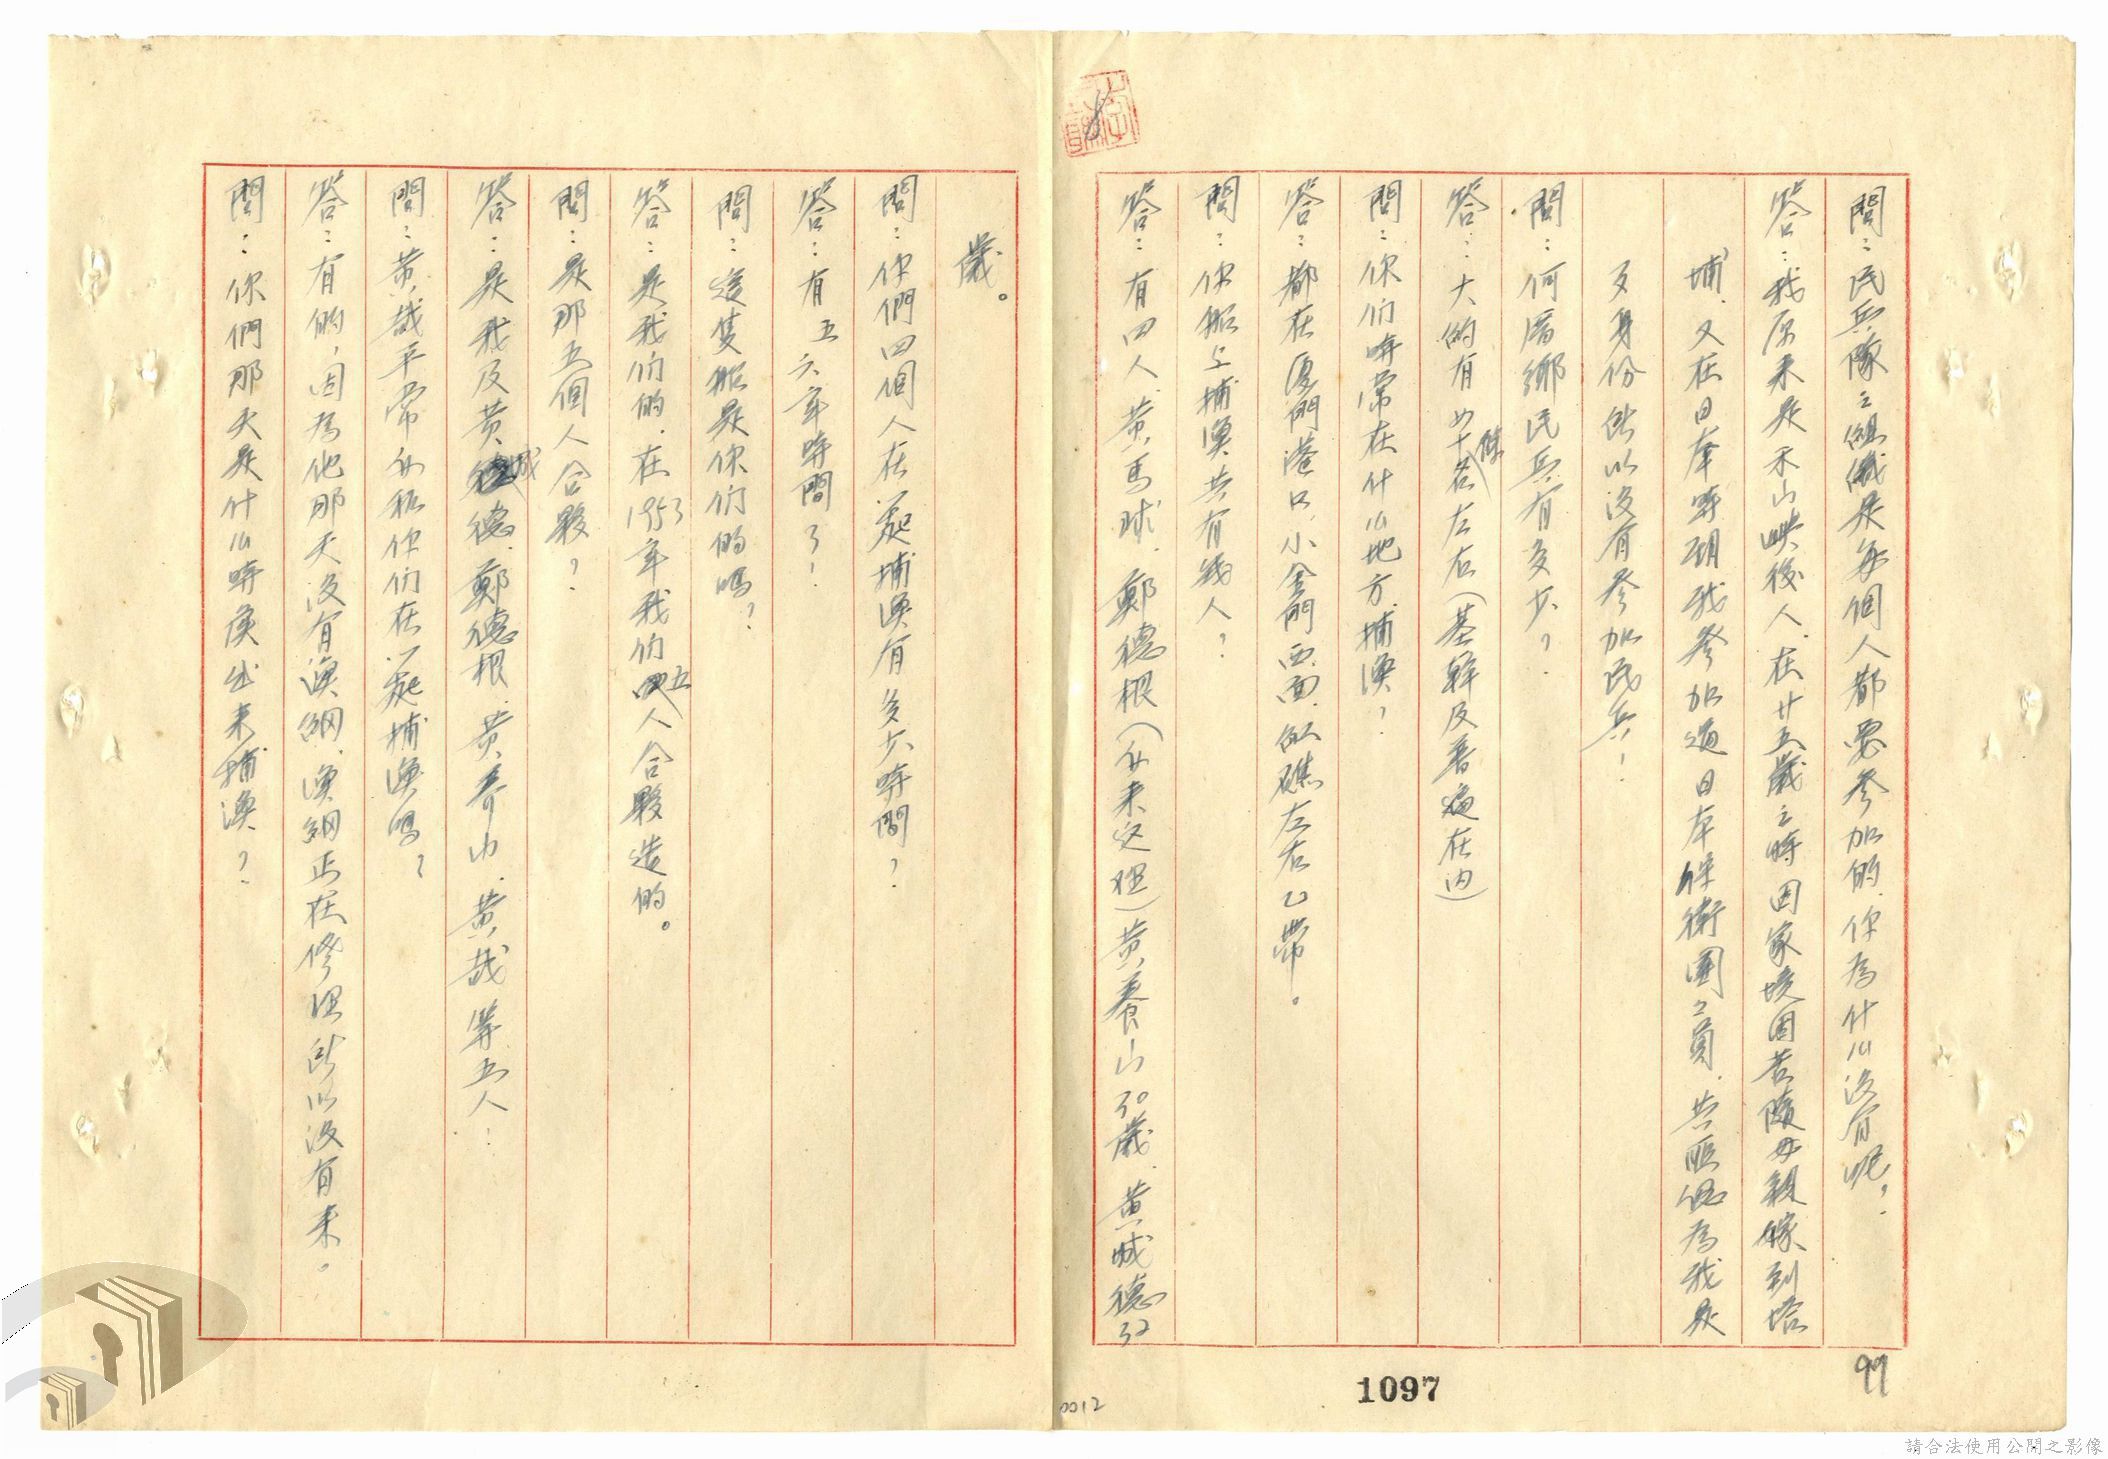 問：民兵隊之組織是每個人都要參加的，你為什么没有呢？
答：我原来是禾山人，在廿五歲之時因家境困苦隨母親嫁到塔
埔，又在日本時期我參加過日本保衛團之員，共匪認為我是
歹身份所以没有參加民兵！
問：何厝鄉民兵有多少？
答：大的有四十餘名左右（基幹及普遍在内）
問：你们時常在什么地方捕漁？
答：都在厦門港口，小金門西面，礁左右乙帶。
問：你船上捕漁共有幾人？
答：有四人，黄馬球，鄭德根（仝来这里）黄養山30歲，黄城德32
歲。
問：你們四個人在一起捕漁有多少時間？
答：有五六年時間了！
問：這隻船是你们的嗎？
答：是我们的，在1953年我们五人合夥造的。
問：是那五個人合夥？
答：是我及黄城德，鄭德根，黄养山，黄哉等五人！
問：黄哉平常仝和你们在一起捕漁嗎？
答：有的，因為他那天没有漁網，漁網正在修理所以没有来。
問：你們那天是什么時候出来捕漁？
99
1097
0012
請合法使用公開之影像